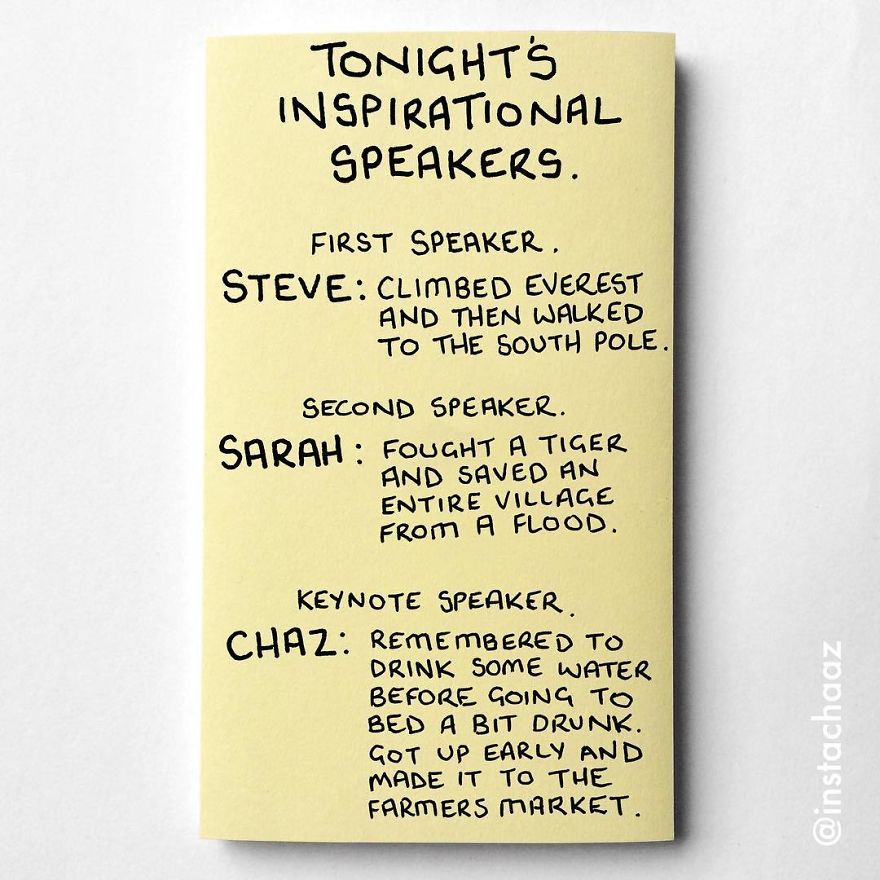 TONIGHT'S
INSPIRATIONAL
SPEAKERS.
FIRST SPEAKER.
STEVE: CLIMBED EVEREST
AND THEN WALKED
TO THE SOUTH POLE.
SECOND SPEAKER.
SARAH: FOUGHT A TIGER
AND SAVED AN
ENTIRE VILLAGE
FROM A FLOOD.
KEYNOTE SPEAKER.
CHAZ: REMEMBERED TO
DRINK SOME WATER
BEFORE GOING TO
BED A BIT DRUNK.
GOT UP EARLY AND
MADE IT TO THE
FARMERS MARKET.
@instachaaz